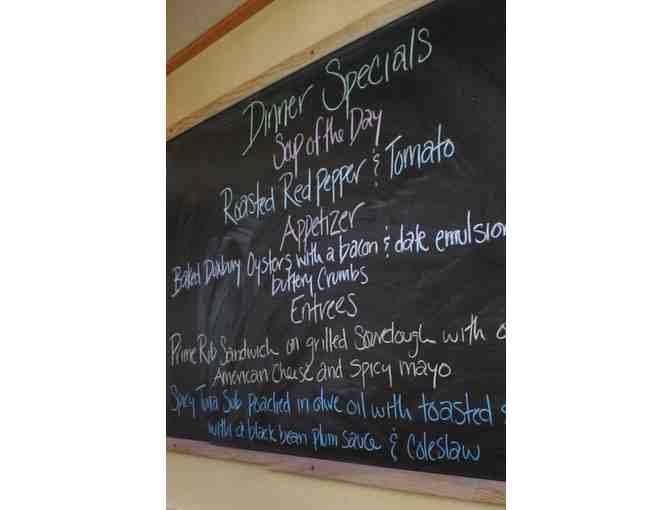 Dinner Specials
Soup of the Day
Roasted Red Pepper & Tomato
Appetizer
Baked Duxbury Oysters with a bacon & date emulsion
buttery Crumbs
Entrees
Prime Rib Sandwich on grilled Sourdough with
American Cheese and spicy mayo
Spicy Tuna Sub poached in olive oil with toasted
with a black bean plum sauce & Coleslaw